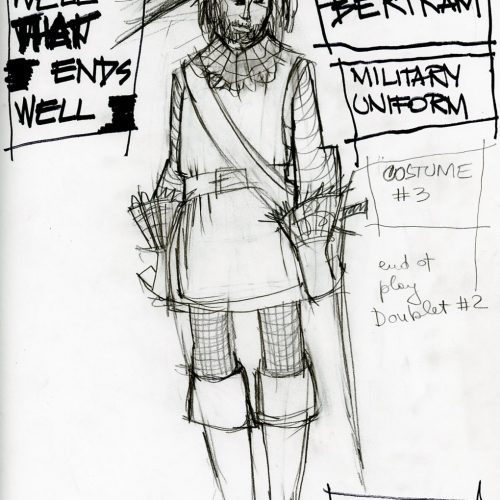 WELL
THAT
ENDS
WELL
BERTRAM
MILITARY
UNIFORM
COSTUME
#3
end of
play
Doublet #2